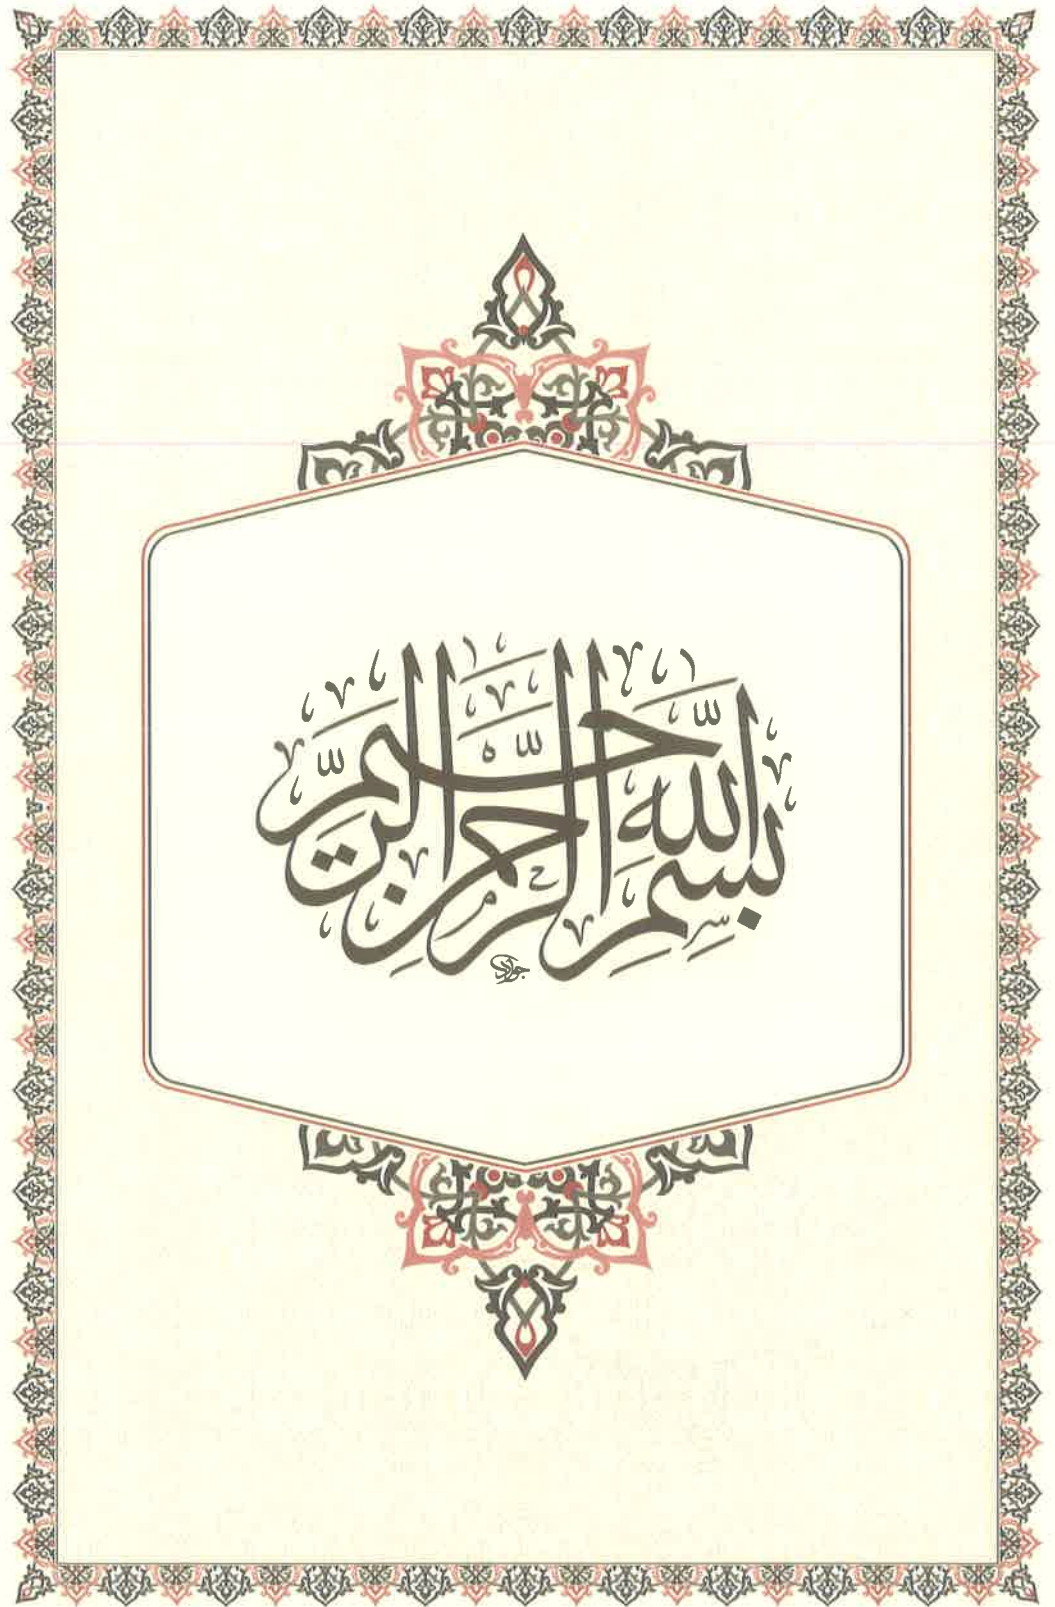 بِسْمِ اللَّهِ الرَّحْمَنِ الرَّحِيمِ
جواد